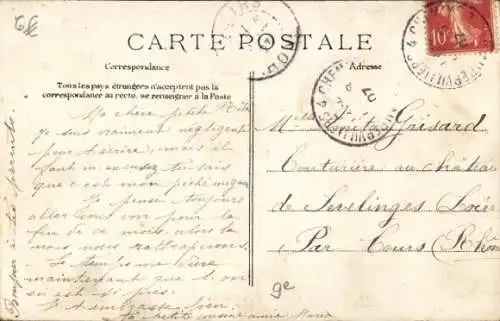 CARTE POSTALE
Correspondance
Adresse
Tous les pays étrangers n'acceptent pas la
correspondance au recto, se renseigner à la Poste
10
Ma chère petite
je suis vraiment négligente
pour t'écrire, mais il
faut m'excuser tu sais
que c'est mon péché mignon
Je pense toujours
aller vous voir pour la
fin de ce mois, alors là
nous nous rattraperons.
Le temps me dure
maintenant que l'on
est si près.
Je t'embrasse bien
Ta petite cousine Marie
Bonjour à tes parents
Grisard
Couturière au château
de Sevelinges Loire
Par Cours (Rhône
9e